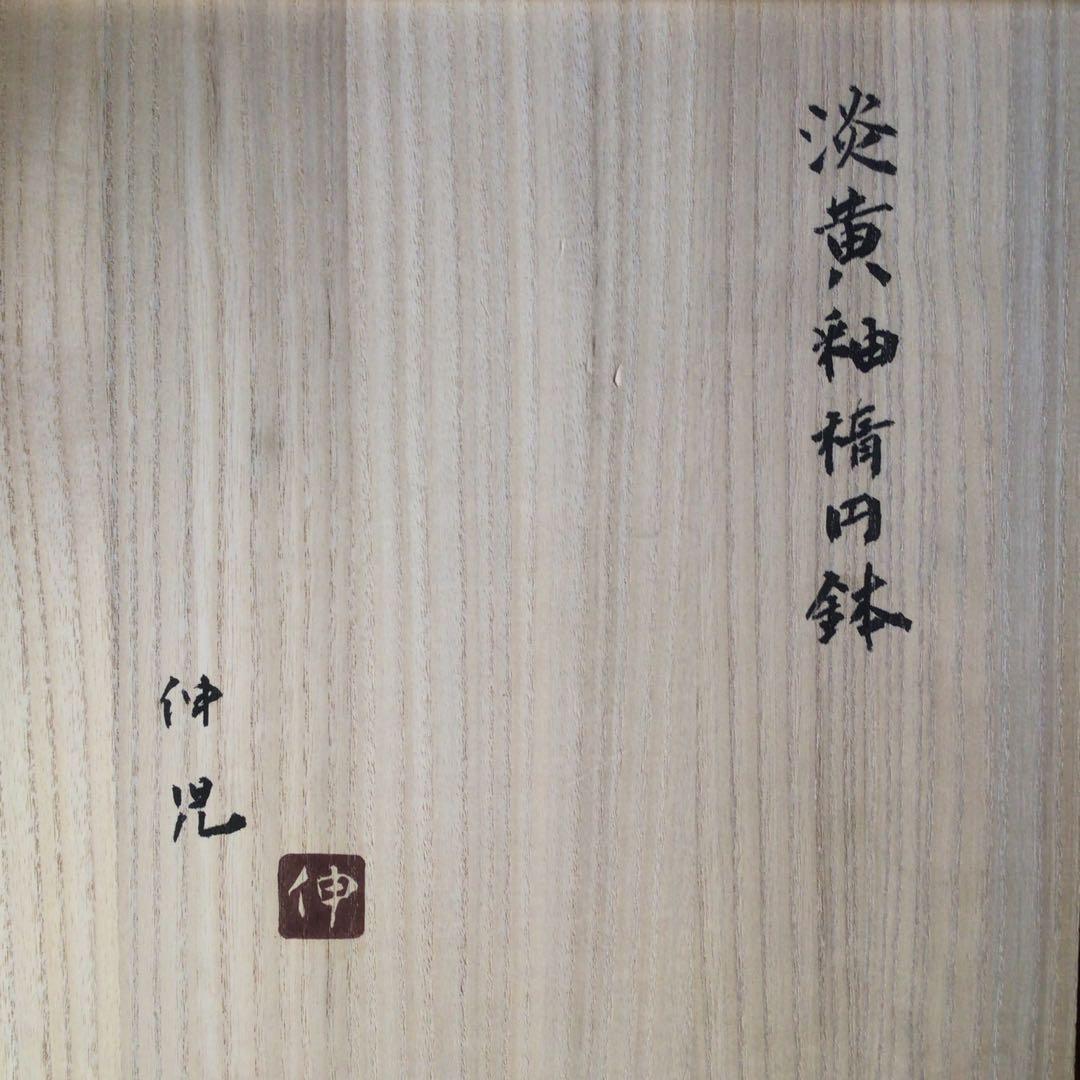 淡黄釉楕円鉢
伸児
伸